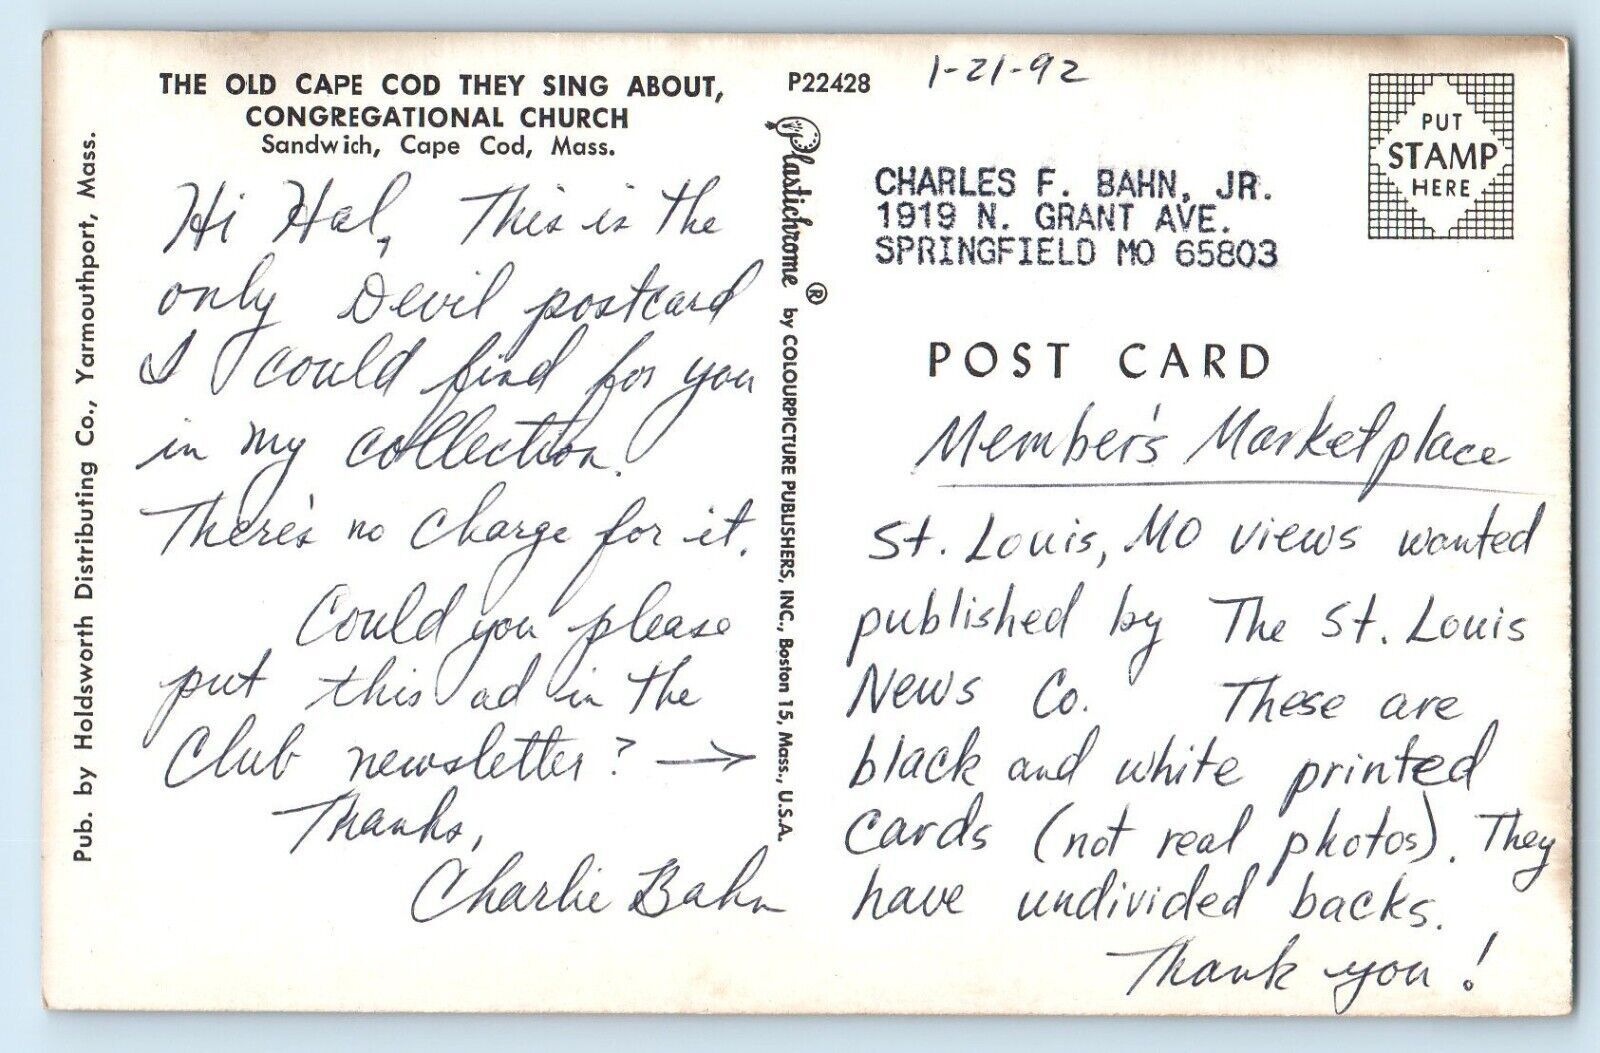 THE OLD CAPE COD THEY SING ABOUT,
CONGREGATIONAL CHURCH
Sandwich, Cape Cod, Mass.
Pub. by Holdsworth Distributing Co., Yarmouthport, Mass.
Hi Hal, This is the
only Devil postcard
I could find for you
in my collection.
There's no charge for it.
Could you please
put this ad in the
Club newsletter? →
Thanks,
Charlie Bahn
P22428
Plastichrome ® by COLOURPICTURE PUBLISHERS, INC., Boston 15, Mass., U.S.A.
1-21-92
PUT
STAMP
HERE
CHARLES F. BAHN, JR.
1919 N. GRANT AVE.
SPRINGFIELD MO 65803
POST CARD
Member's Marketplace
St. Louis, MO views wanted
published by The St. Louis
News Co. These are
black and white printed
cards (not real photos). They
have undivided backs.
Thank you!